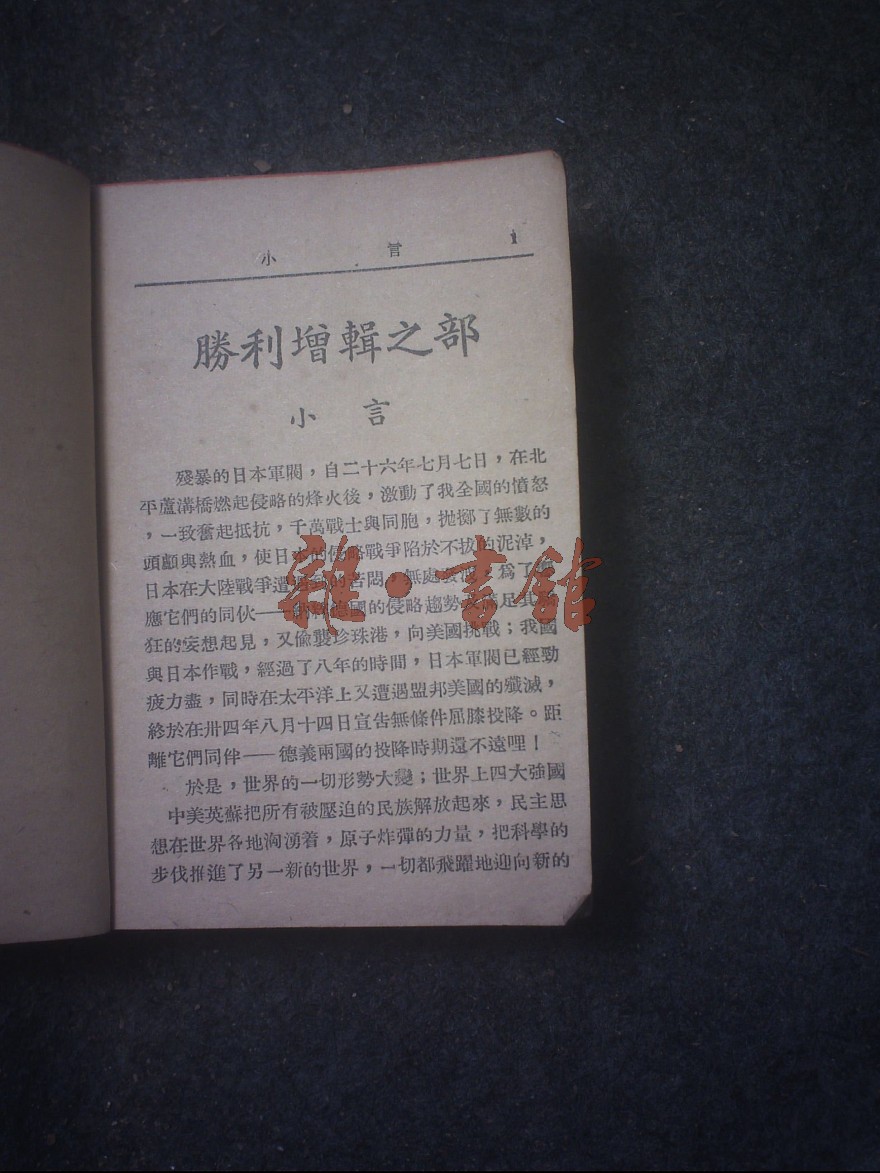 小言 1
勝利增輯之部
小言
殘暴的日本軍閥，自二十六年七月七日，在北
平蘆溝橋燃起侵略的烽火後，激動了我全國的憤怒
，一致奮起抵抗，千萬戰士與同胞，拋擲了無數的
頭顱與熱血，使日本的侵略戰爭陷於不拔的泥淖，
日本在大陸戰爭遭遇到的苦悶，無處發洩，爲了
應它們的同伙——德國的侵略趨勢及滿足其
狂的妄想起見，又偸襲珍珠港，向美國挑戰；我國
與日本作戰，經過了八年的時間，日本軍閥已經勁
疲力盡，同時在太平洋上又遭遇盟邦美國的殲滅，
終於在卅四年八月十四日宣告無條件屈膝投降。距
離它們同伴——德義兩國的投降時期還不遠哩！
於是，世界的一切形勢大變；世界上四大強國
中美英蘇把所有被壓迫的民族解放起來，民主思
想在世界各地洶湧着，原子炸彈的力量，把科學的
步伐推進了另一新的世界，一切都飛躍地迎向新的
雜·書館